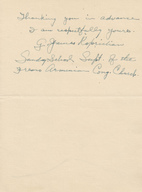 Thanking you in advance
I am respectfully yours.
G. James
Sunday School, Supt. of the
Fresno Armenian Cong. Church